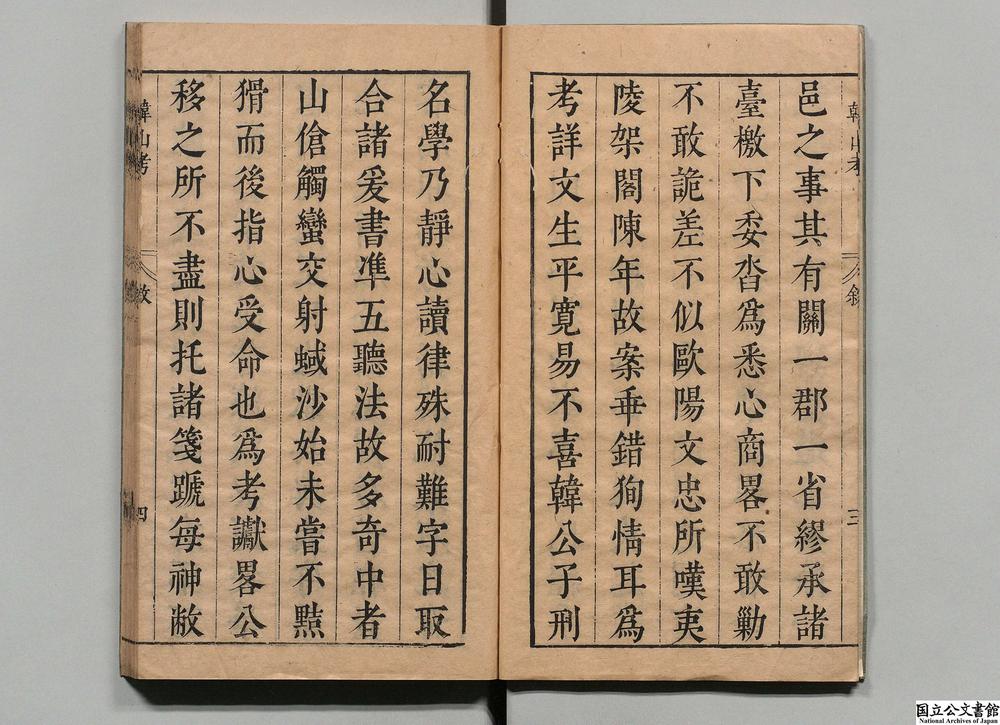 韓山考
敘
三
邑之事其有關一郡一省繆承諸
臺檄下委沓爲悉心商畧不敢勦
不敢詭差不似歐陽文忠所嘆夷
陵架閣陳年故案乖錯狥情耳爲
考詳文生平寛易不喜韓公子刑
名學乃靜心讀律殊耐難字日取
合諸爰書凖五聽法故多奇中者
山傖觸蠻交射蜮沙始未嘗不黠
猾而後指心受命也爲考讞畧公
移之所不盡則托諸箋蹏每神敝
韓山考
敘
四
国立公文書館
National Archives of Japan